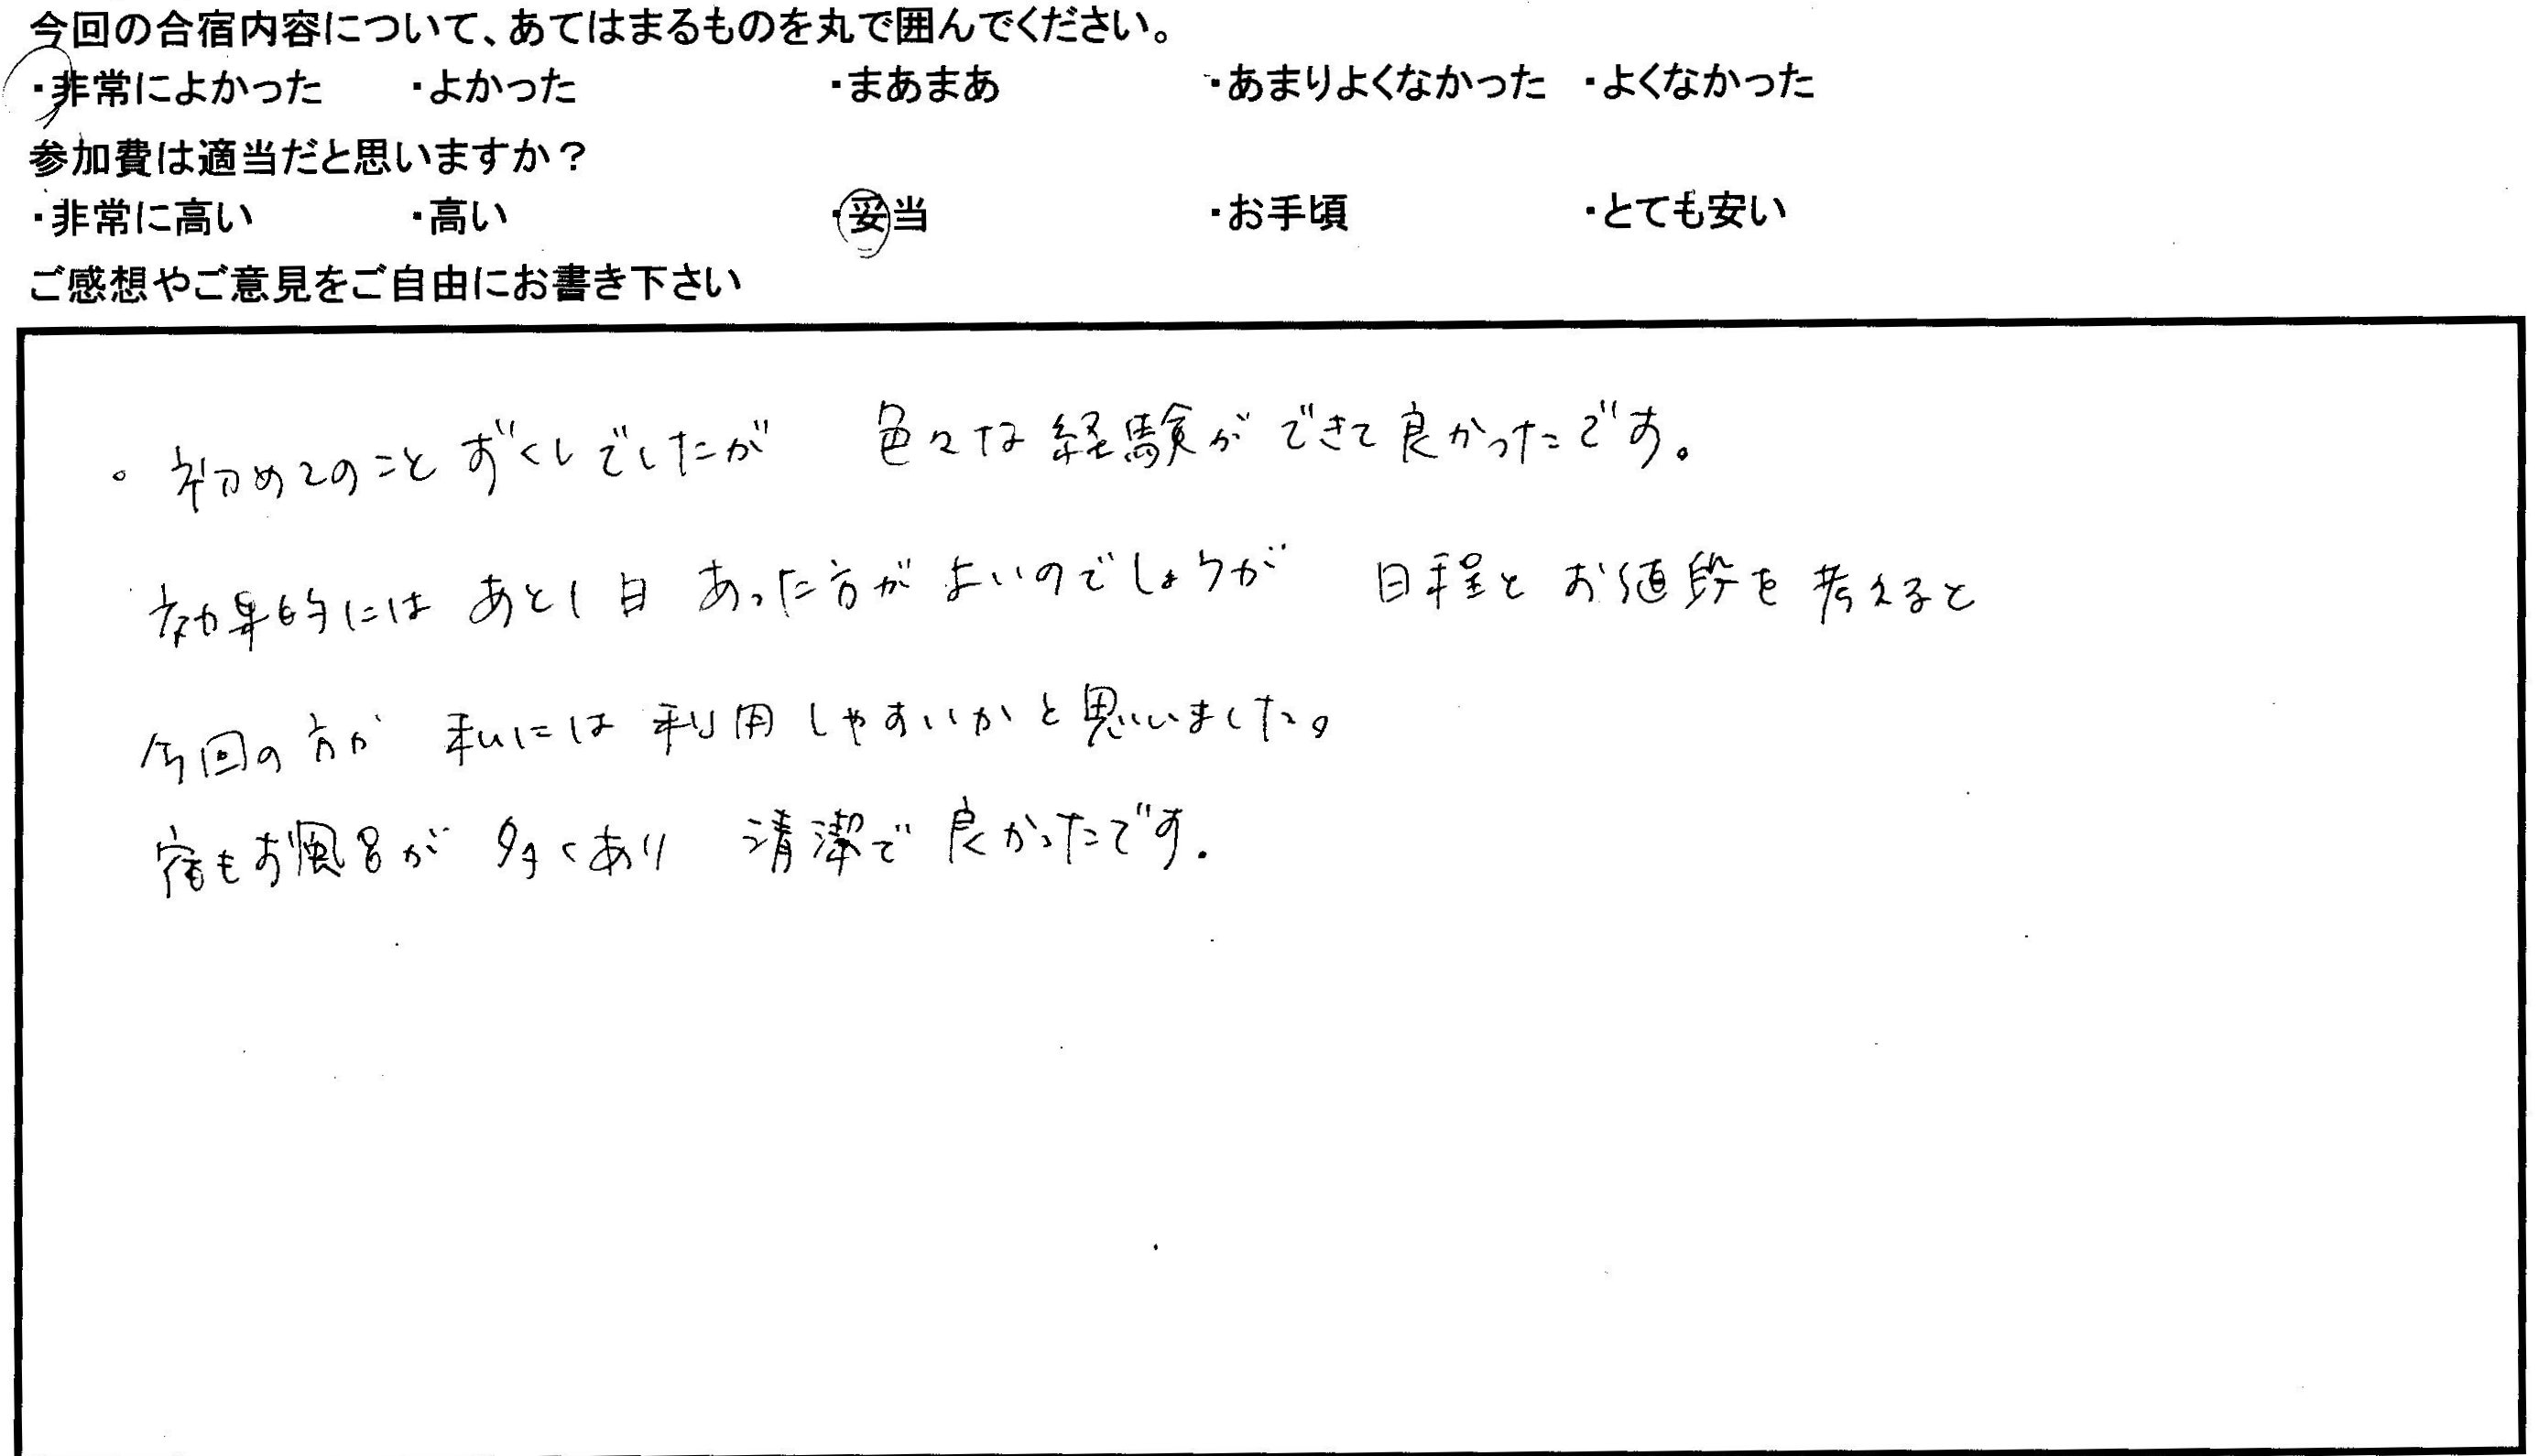 今回の合宿内容について、あてはまるものを丸で囲んでください。
・非常によかった ・よかった ・まあまあ ・あまりよくなかった ・よくなかった
参加費は適当だと思いますか？
・非常に高い ・高い ・妥当 ・お手頃 ・とても安い
ご感想やご意見をご自由にお書き下さい
。初めてのことずくしでしたが 色々な経験ができて良かったです。
効果的には あと1日 あった方が よいのでしょうが 日程と お値段を 考えると
今回の方が 私には 利用しやすいかと思いました。
宿もお風呂が 多くあり 清潔で 良かったです.